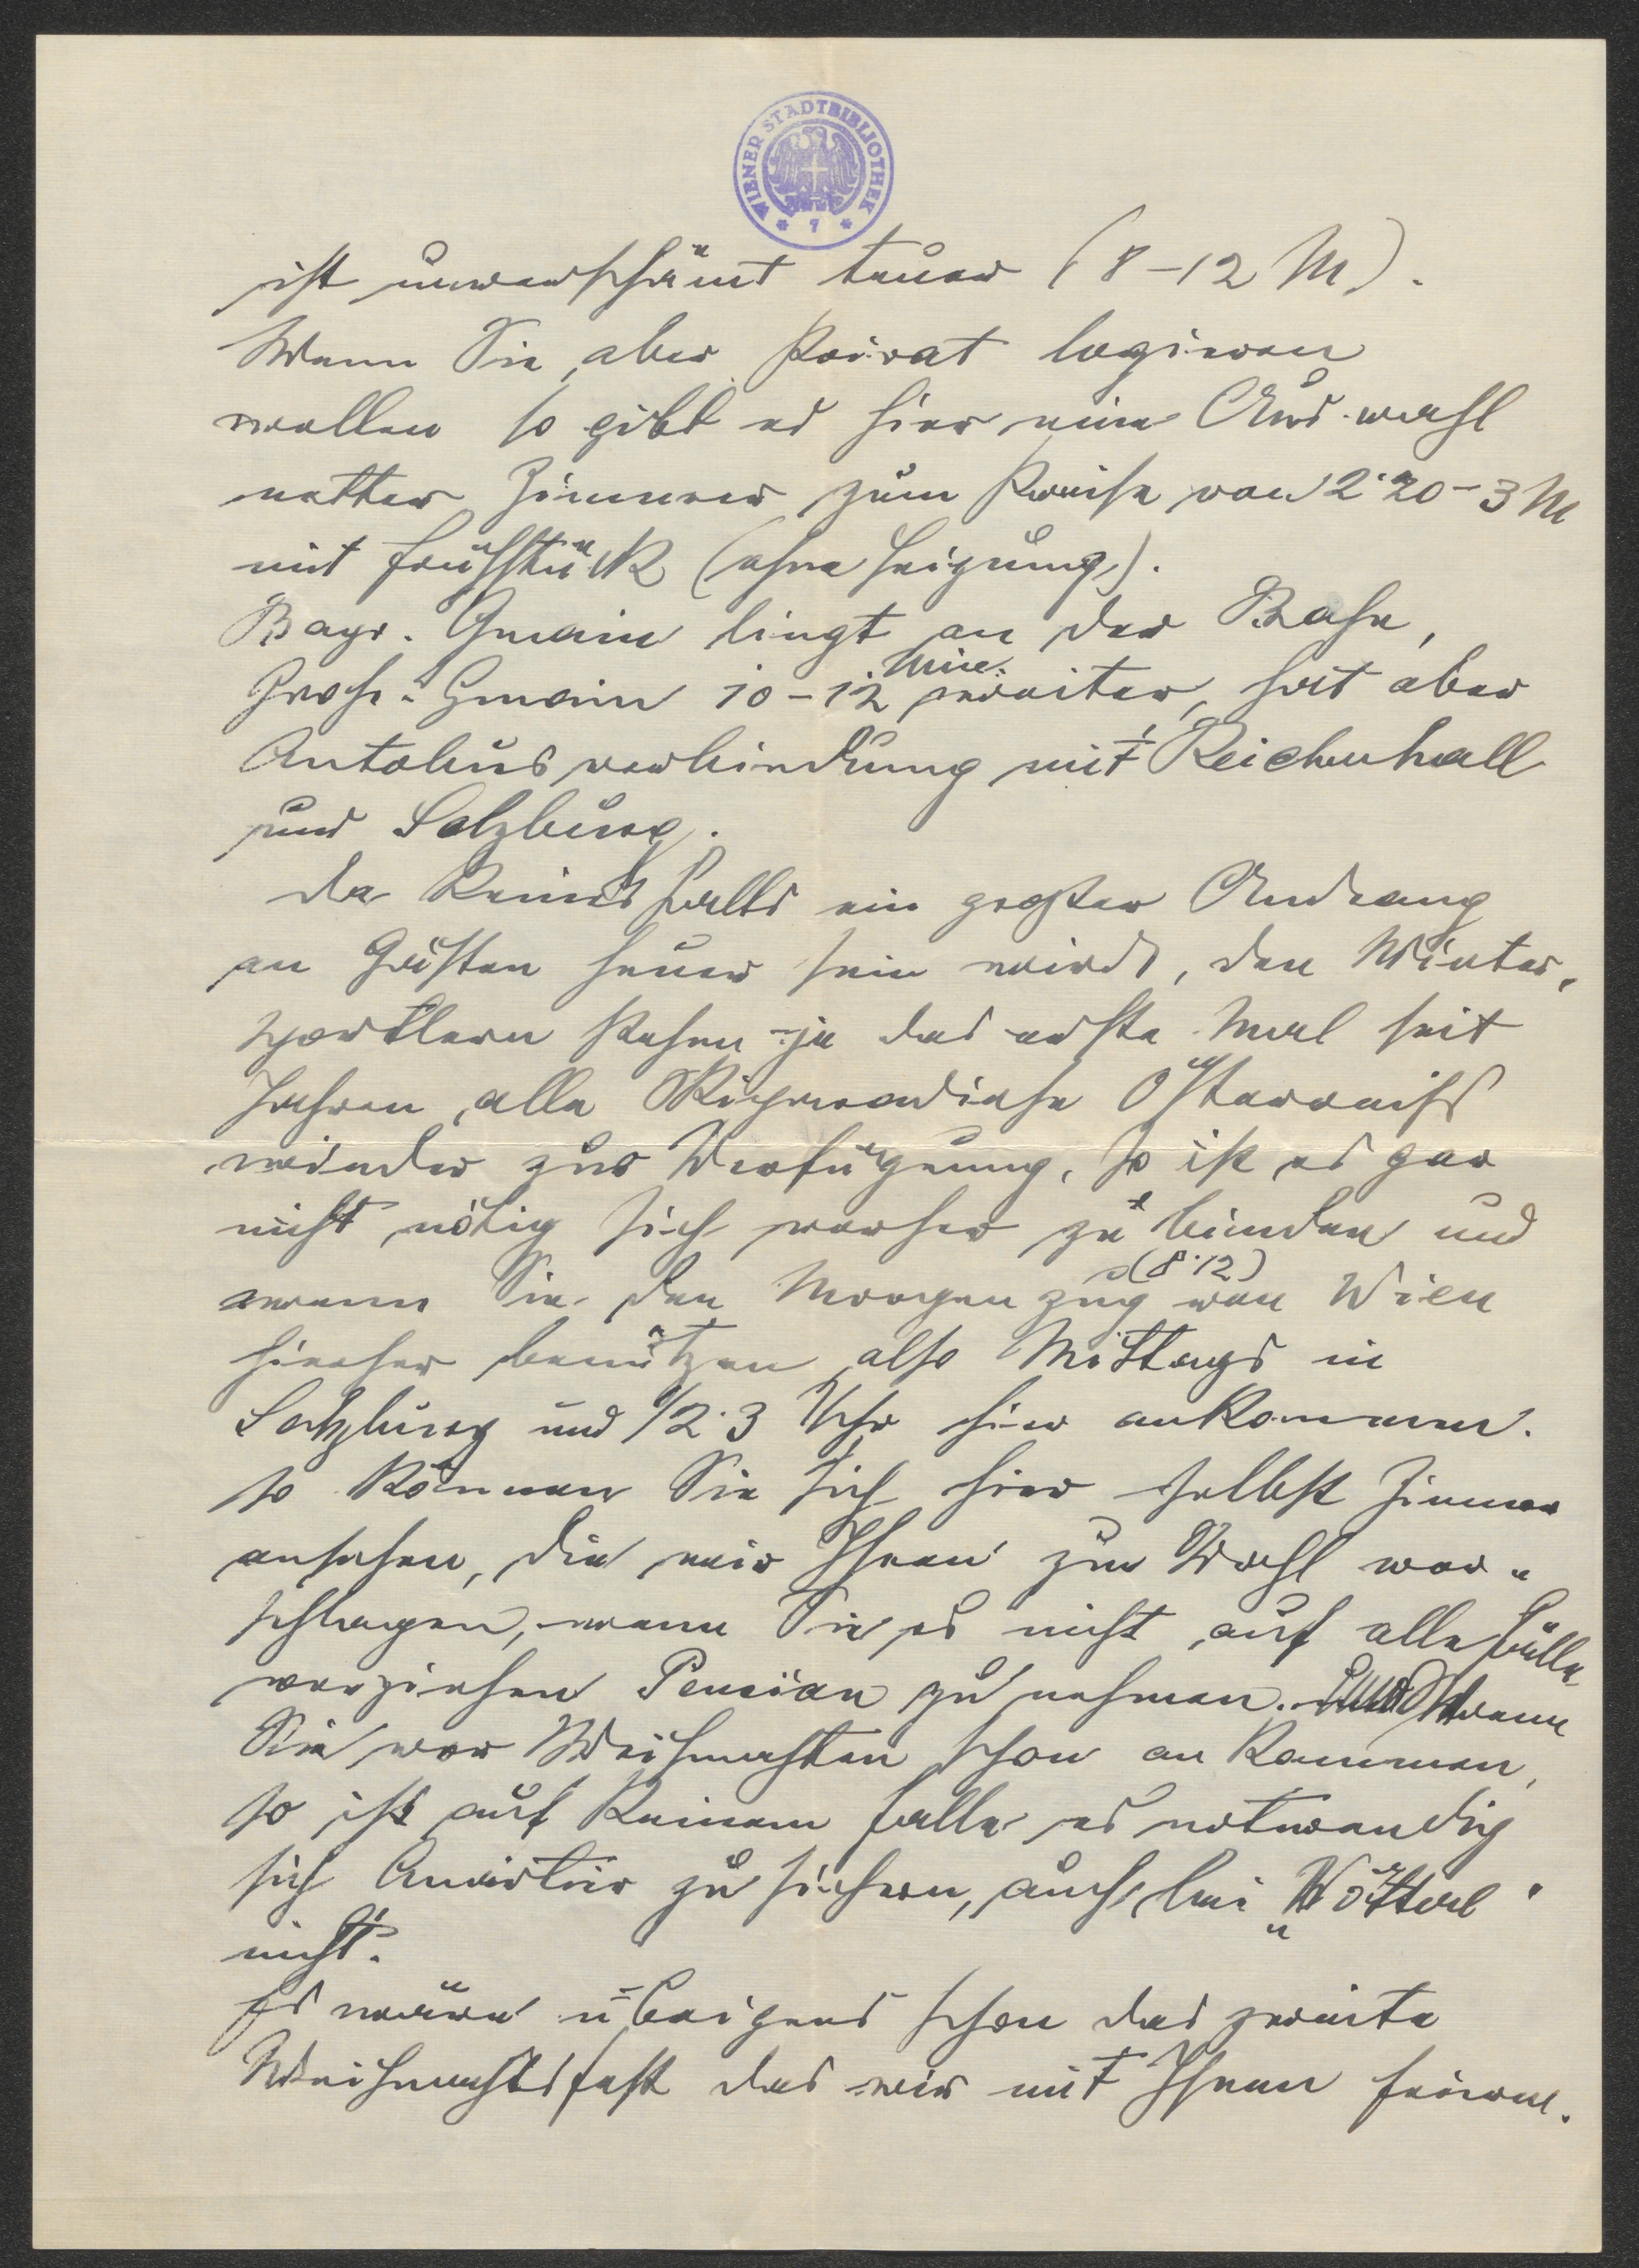 WIENER STADTBIBLIOTHEK
* 7 *
ist unverschämt teuer (8-12 M).
Wenn Sie aber Privat logieren
wollen so gibt es hier eine Auswahl
netter Zimmer zum Preise von 2·20-3 M
mit Frühstück (ohne Heizung).
Bayr. Gmain liegt an der Bahn,
Groß-Gmain 10-12 Min. weiter, hat aber
Autobusverbindung mit Reichenhall
und Salzburg.
Da keinesfalls ein großer Andrang
an Gästen heuer sein wird, den Winter-
sportlern stehen ja das erste Mal seit
Jahren alle Skiparadiese Österreichs
wieder zur Verfügung, so ist es gar
nicht nötig sich vorher zu binden und
wenn Sie den Morgenzug (8·12) von Wien
hieher benützen also Mittags in
Salzburg und 1/2 3 Uhr hier ankommen.
so können Sie sich hier selbst Zimmer
ansehen, die wir Ihnen zur Wahl vor-
schlagen, wenn Sie es nicht auf alle Fälle
vorziehen Pension zu nehmen. Wenn
Sie vor Weihnachten schon an kommen,
so ist auf keinem Falle es notwendig
sich Quartier zu sichern, auch bei „Wötterl"
nicht.
Es wäre übrigens schon das zweite
Weihnachtsfest das wir mit Ihnen feiern.